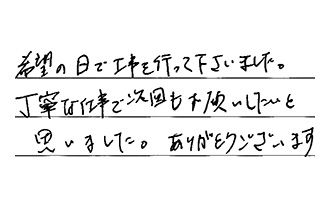 希望の日で工事を行って下さいました。
丁寧な仕事で次回もお願いしたいと
思いました。ありがとうございます